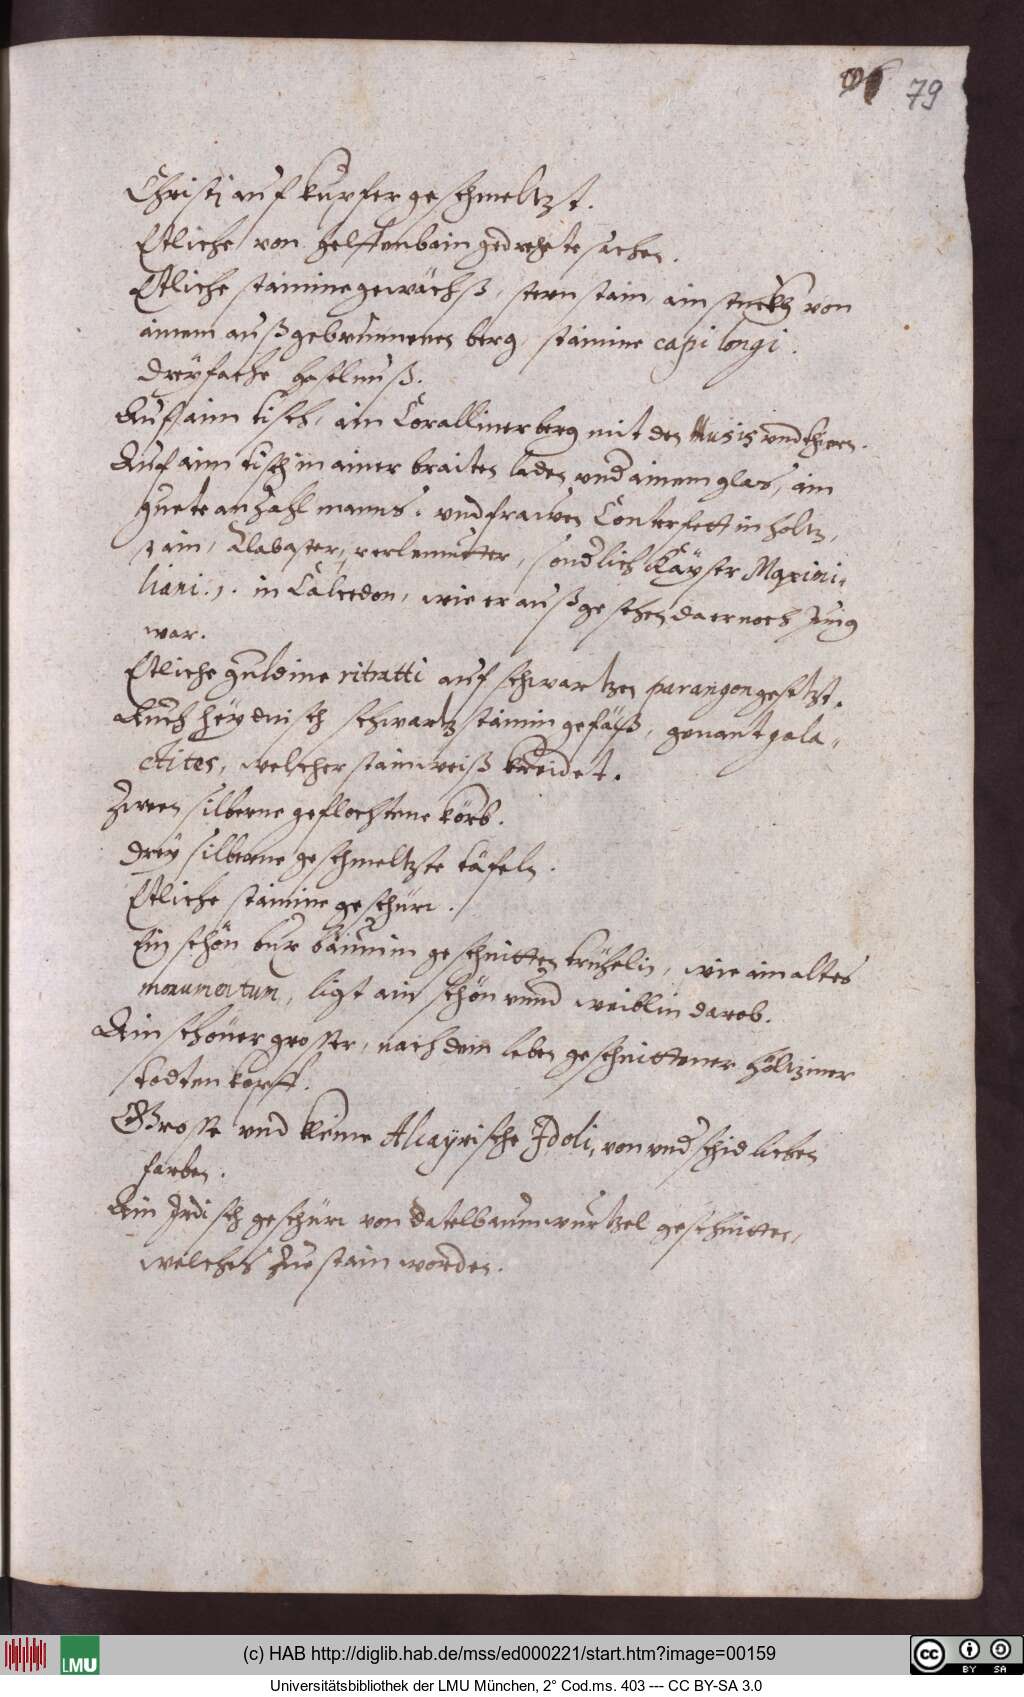 79
Christi auf kupfer geschmeltzt.
Etliche von helffenbain gedrehete sachen.
Etliche stainine gewächß, stern stain, ain stuckh von
ainem außgebrunnenen berg, stainine capi longi.
dreyfache haselnuß.
Auf aim tisch, ain Coralliner berg mit den Musis und thiern.
Auf aim tisch in ainer braiten laden und ainem glas, ain
guete anzahl manns. und frawen Conterfett in holtz,
stain, Alabaster, perlemutter, sondlich Kayser Maximi-
liani .1. in Calcedon, wie er außgesehen da er noch Jung
war.
Etliche guldine ritratti auf schwartzen parangon gesetzt.
Auch heydnisch schwartz stainin gefäß, genant gala-
ctites, welcher stain weiß kreidet.
Zween silberne geflochtene körb.
Drey silberne geschmeltzte täfeln.
Etliche stainine geschürr.
Ein schön bux bäumin geschnitten trühelin, wie ain altes
monumentum, ligt ain schön weiblin darob.
Ain schöner grosser, nach dem leben geschnittener höltziner
todten kopff.
Grosse und kleine Alcayrische Idoli, von undschidlichen
farben.
Ain Irdisch geschürr von datelbaumwurtzel geschnitten,
welches zue stain worden.
(c) HAB http://diglib.hab.de/mss/ed000221/start.htm?image=00159
LMU
cc BY SA
Universitätsbibliothek der LMU München, 2° Cod.ms. 403 --- CC BY-SA 3.0